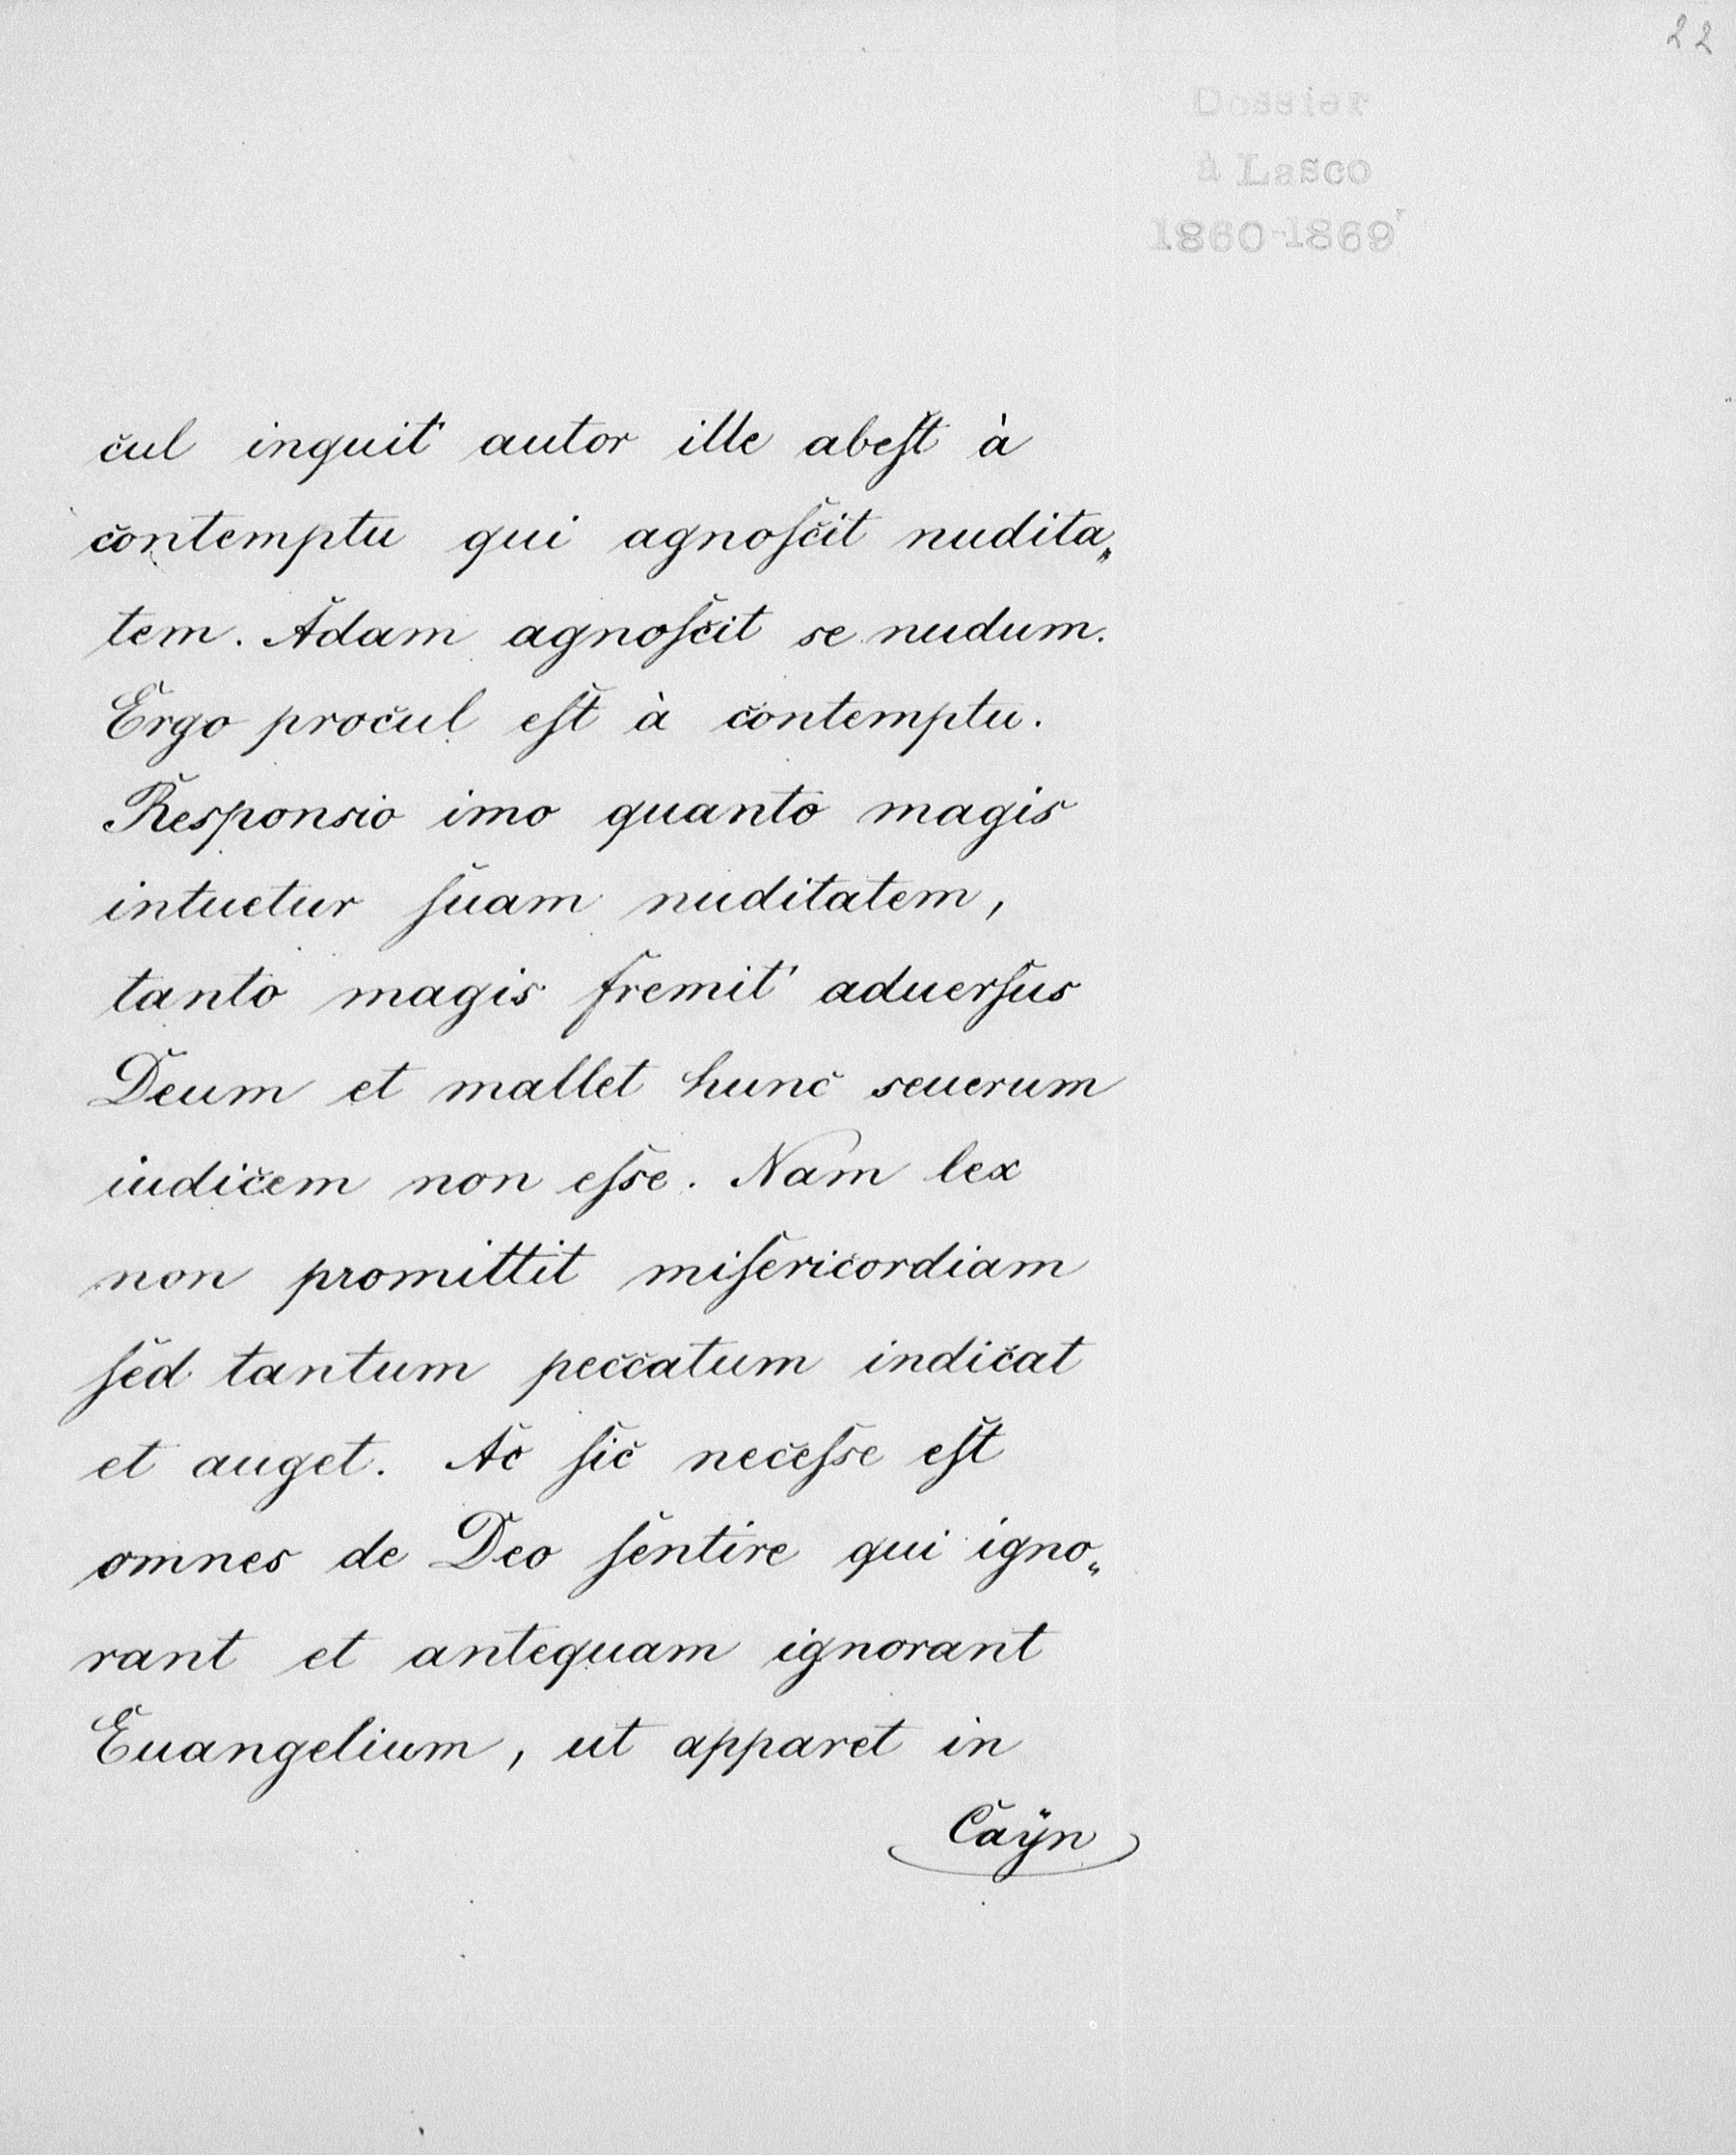 22
Dossier
à Lasco
1860-1869
cul inquit autor ille abeſt à
contemptu qui agnoſcit nudita„
tem. Adam agnoſcit se nudum.
Ergo procul eſt à contemptu.
Responsio imo quanto magis
intuetur ſuam nuditatem,
tanto magis fremit aduerſus
Deum et mallet hunc seuerum
iudicem non eſse. Nam lex
non promittit miſericordiam
ſed tantum peccatum indicat
et auget. Ac ſic neceſse eſt
omnes de Deo ſentire qui igno„
rant et antequam ignorant
Euangelium, ut apparet in
Caÿn